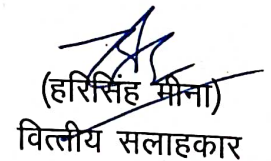 (हरिसिंह मीना)
वित्तीय सलाहकार